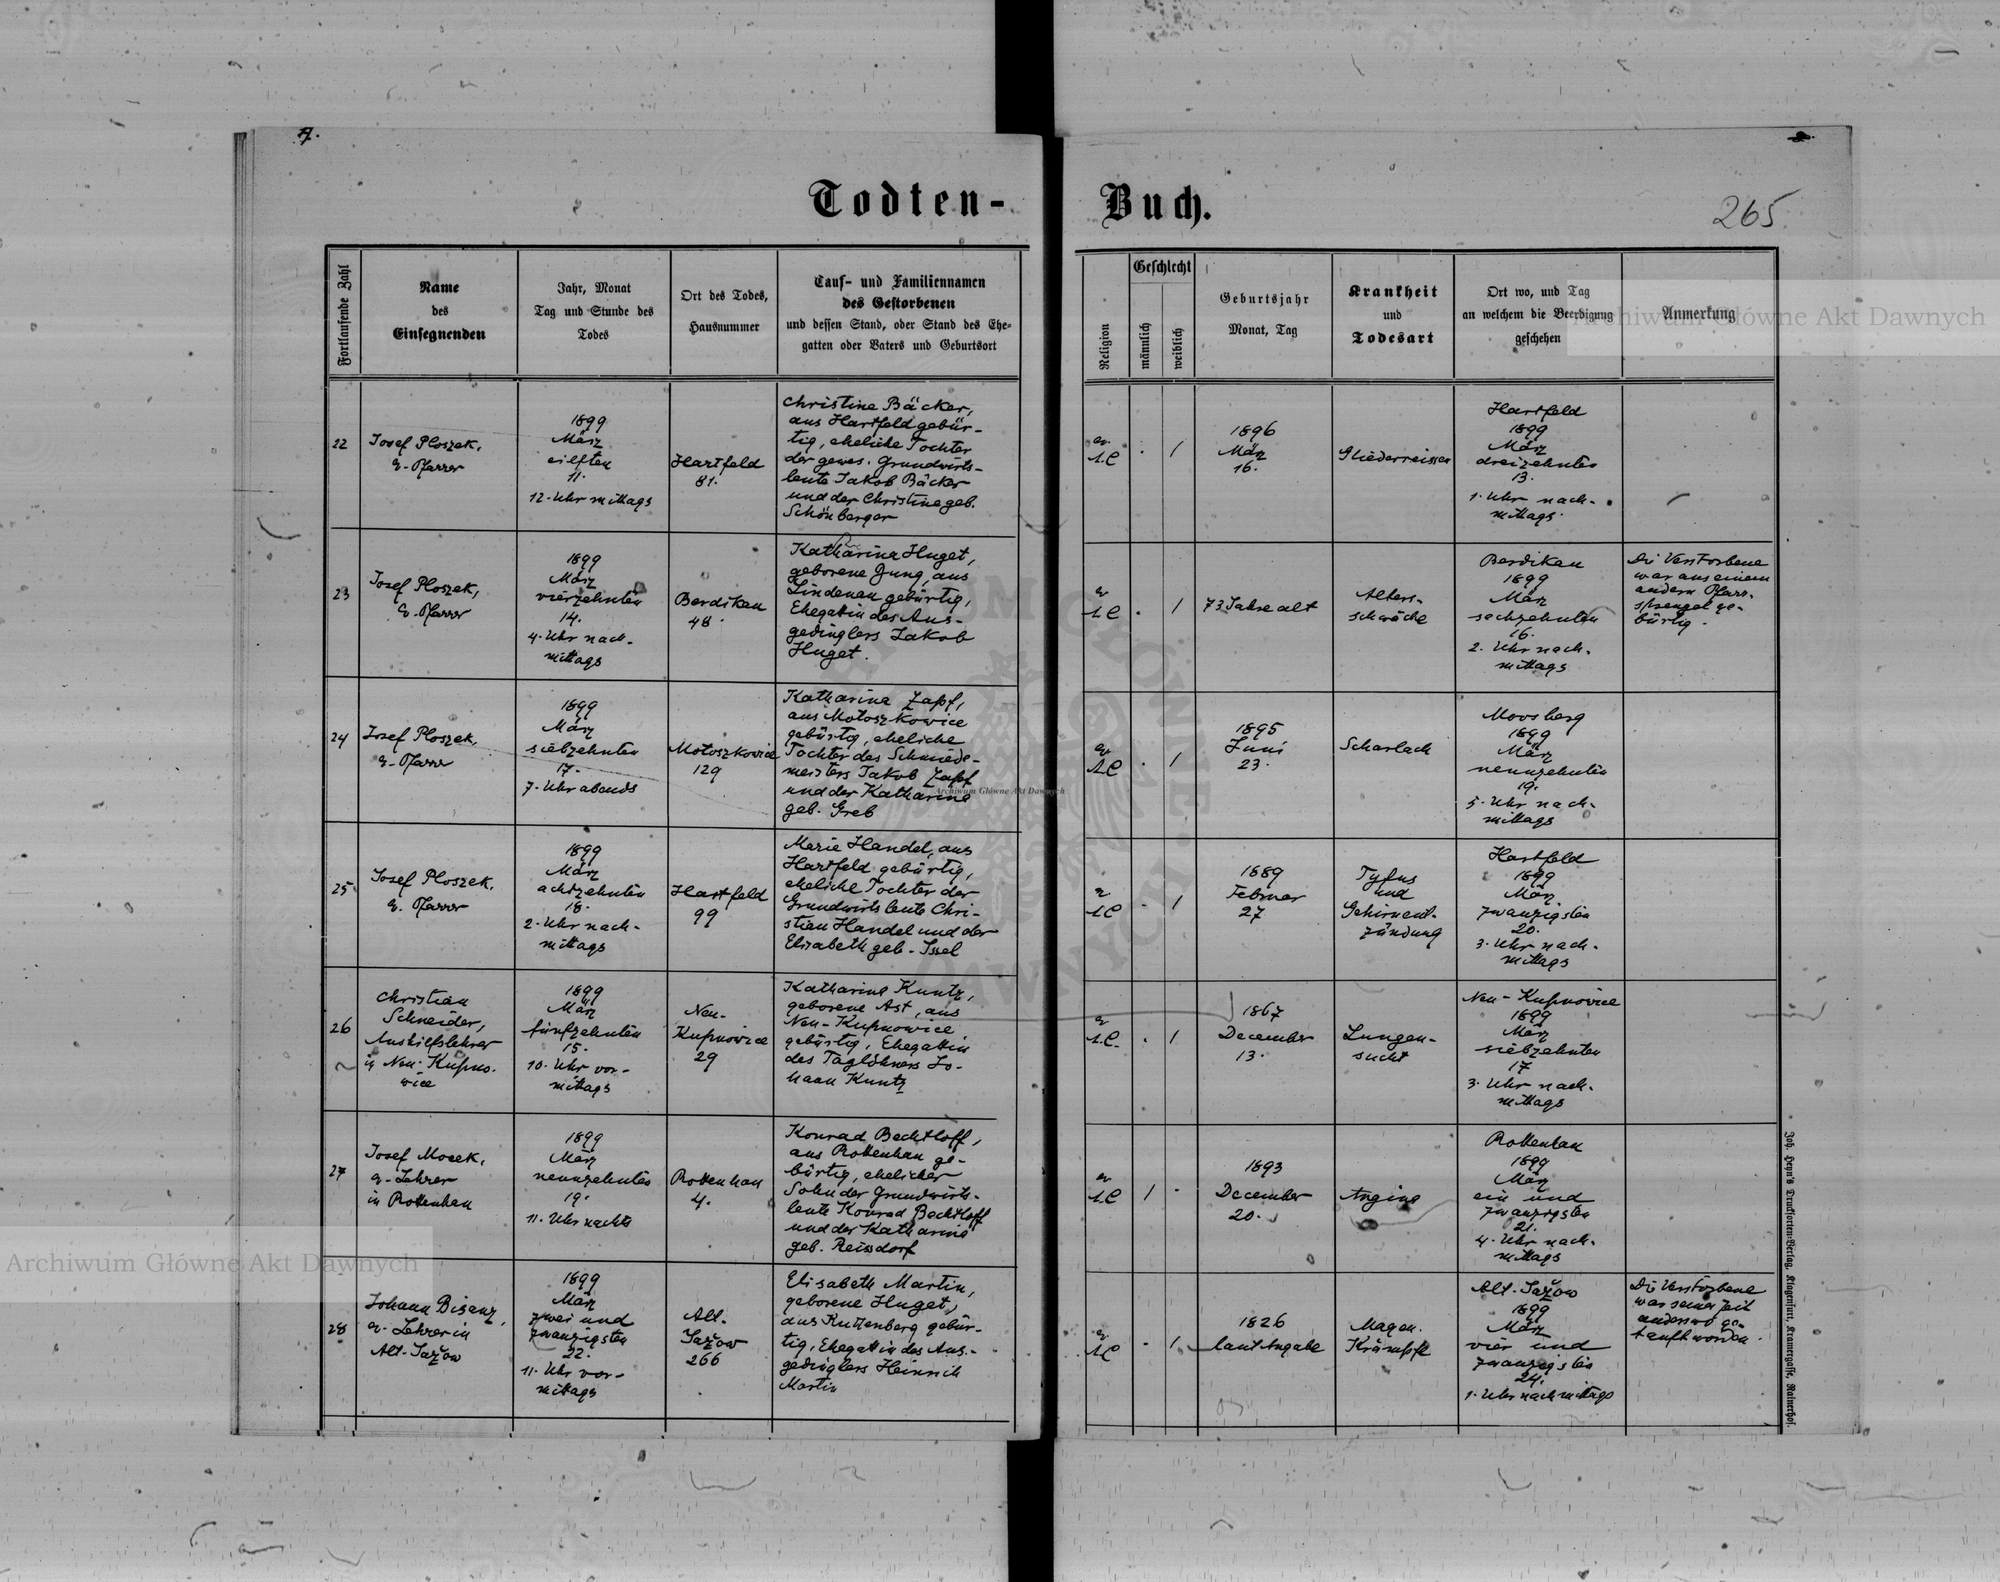 7.
Todten-
Buch.
265
Fortlaufende Zahl
Name
des
Einsegnenden
Jahr, Monat
Tag und Stunde des
Todes
Ort des Todes,
Hausnummer
Tauf- und Familiennamen
des Gestorbenen
und dessen Stand, oder Stand des Ehe-
gatten oder Vaters und Geburtsort
Religion
Geschlecht
männlich
weiblich
Geburtsjahr
Monat, Tag
Krankheit
und
Todesart
Ort wo, und Tag
an welchem die Beerdigung
geschehen
Anmerkung
22
Josef Ploszek,
ev. Pfarrer
1899
März
eilften
11.
12. Uhr mittags
Hartfeld
81.
Christine Bäcker,
aus Hartfeld gebür-
tig, eheliche Tochter
der gewes. Grundwirts-
leute Jakob Bäcker
und der Christine geb.
Schönberger
ev.
A.C
1
1896
März
16.
Gliederreissen
Hartfeld
1899
März
dreizehnten
13.
1. Uhr nach-
mittags.
23
Josef Ploszek,
ev. Pfarrer
1899
März
vierzehnten
14.
4. Uhr nach-
mittags
Berdikau
48.
Katharina Huget,
geborene Jung, aus
Lindenau gebürtig,
Ehegattin des Aus-
gedinglers Jakob
Huget.
ev
A.C
1
73 Jahre alt
Alters-
schwäche
Berdikau
1899
März
sechzehnten
16.
2. Uhr nach-
mittags
Die Verstorbene
war aus einem
andern Pfarr-
sprengel ge-
bürtig.
24
Josef Ploszek,
ev. Pfarrer
1899
März
siebzehnten
17.
7. Uhr abends
Motoszkowice
129
Katharina Zapf,
aus Motoszkowice
gebürtig, eheliche
Tochter des Schmiede-
meisters Jakob Zapf
und der Katharina
geb. Greb
ev
A.C
1
1895
Juni
23.
Scharlach
Moosberg
1899
März
neunzehnten
19.
5. Uhr nach-
mittags
25
Josef Ploszek,
ev. Pfarrer
1899
März
achtzehnten
18.
2. Uhr nach-
mittags
Hartfeld
99
Marie Handel, aus
Hartfeld gebürtig,
eheliche Tochter der
Grundwirtsleute Chri-
stian Handel und der
Elisabeth geb. Issel
ev.
A.C
1
1889
Februar
27
Tyfus
und
Gehirnent-
zündung
Hartfeld
1899
März
zwanzigsten
20.
3. Uhr nach-
mittags
26
Christian
Schneider,
Aushilfslehrer
in Neu-Kupno-
wice
1899
März
fünfzehnten
15.
10. Uhr vor-
mittags
Neu-
Kupnowice
29
Katharina Kuntz,
geborene Ast, aus
Neu-Kupnowice
gebürtig, Ehegattin
des Taglöhners Jo-
hann Kuntz
ev
A.C.
1
1867
December
13.
Lungen-
sucht
Neu-Kupnowice
1899
März
siebzehnten
17
3. Uhr nach-
mittags
27
Josef Mocek,
ev. Lehrer
in Rottenhan
1899
März
neunzehnten
19.
11. Uhr nachts
Rottenhan
4.
Konrad Bechtloff,
aus Rottenhan ge-
bürtig, ehelicher
Sohn der Grundwirts-
leute Konrad Bechtloff
und der Katharina
geb. Reissdorf
ev
A.C
1
1893
December
20.
Angina
Rottenhan
1899
März
ein und
zwanzigsten
21.
4. Uhr nach-
mittags
28
Johann Bisanz,
ev. Lehrer in
Alt-Jažow
1899
März
zwei und
zwanzigsten
22.
11. Uhr vor-
mittags
Alt-
Jažow
266
Elisabeth Martin,
geborene Huget,
aus Kuttenberg gebür-
tig, Ehegattin des Aus-
gedinglers Heinrich
Martin
ev
A.C
1
1826
laut Angabe
Magen-
Krämpfe
Alt-Jažow
1899
März
vier und
zwanzigsten
24.
1. Uhr nachmittags
Die Verstorbene
war seiner Zeit
anderswo ge-
tauft worden.
Joh. Heyn's Drucksorten-Verlag, Klagenfurt, Kramergasse, Rainerhof.
Archiwum Główne Akt Dawnych
Archiwum Główne Akt Dawnych
Archiwum Główne Akt Dawnych